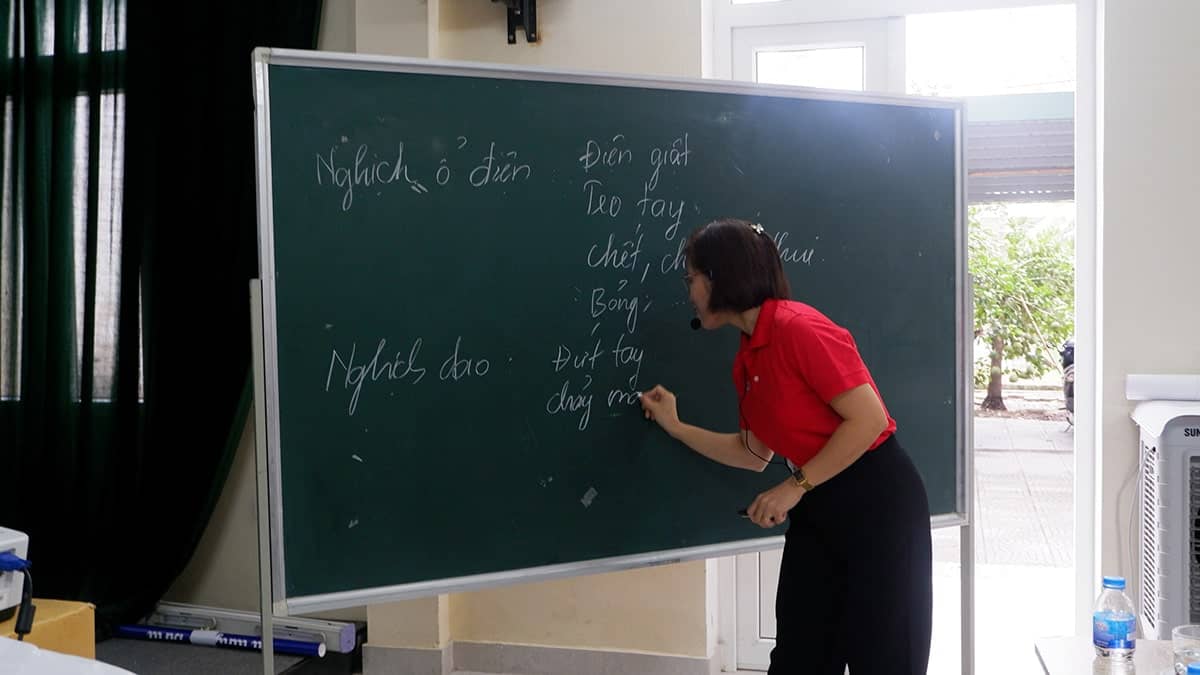 Nghịch ổ điện : Điện giật
Teo tay
chết, thui
Bỏng
Nghịch dao : Đứt tay
chảy
SUN